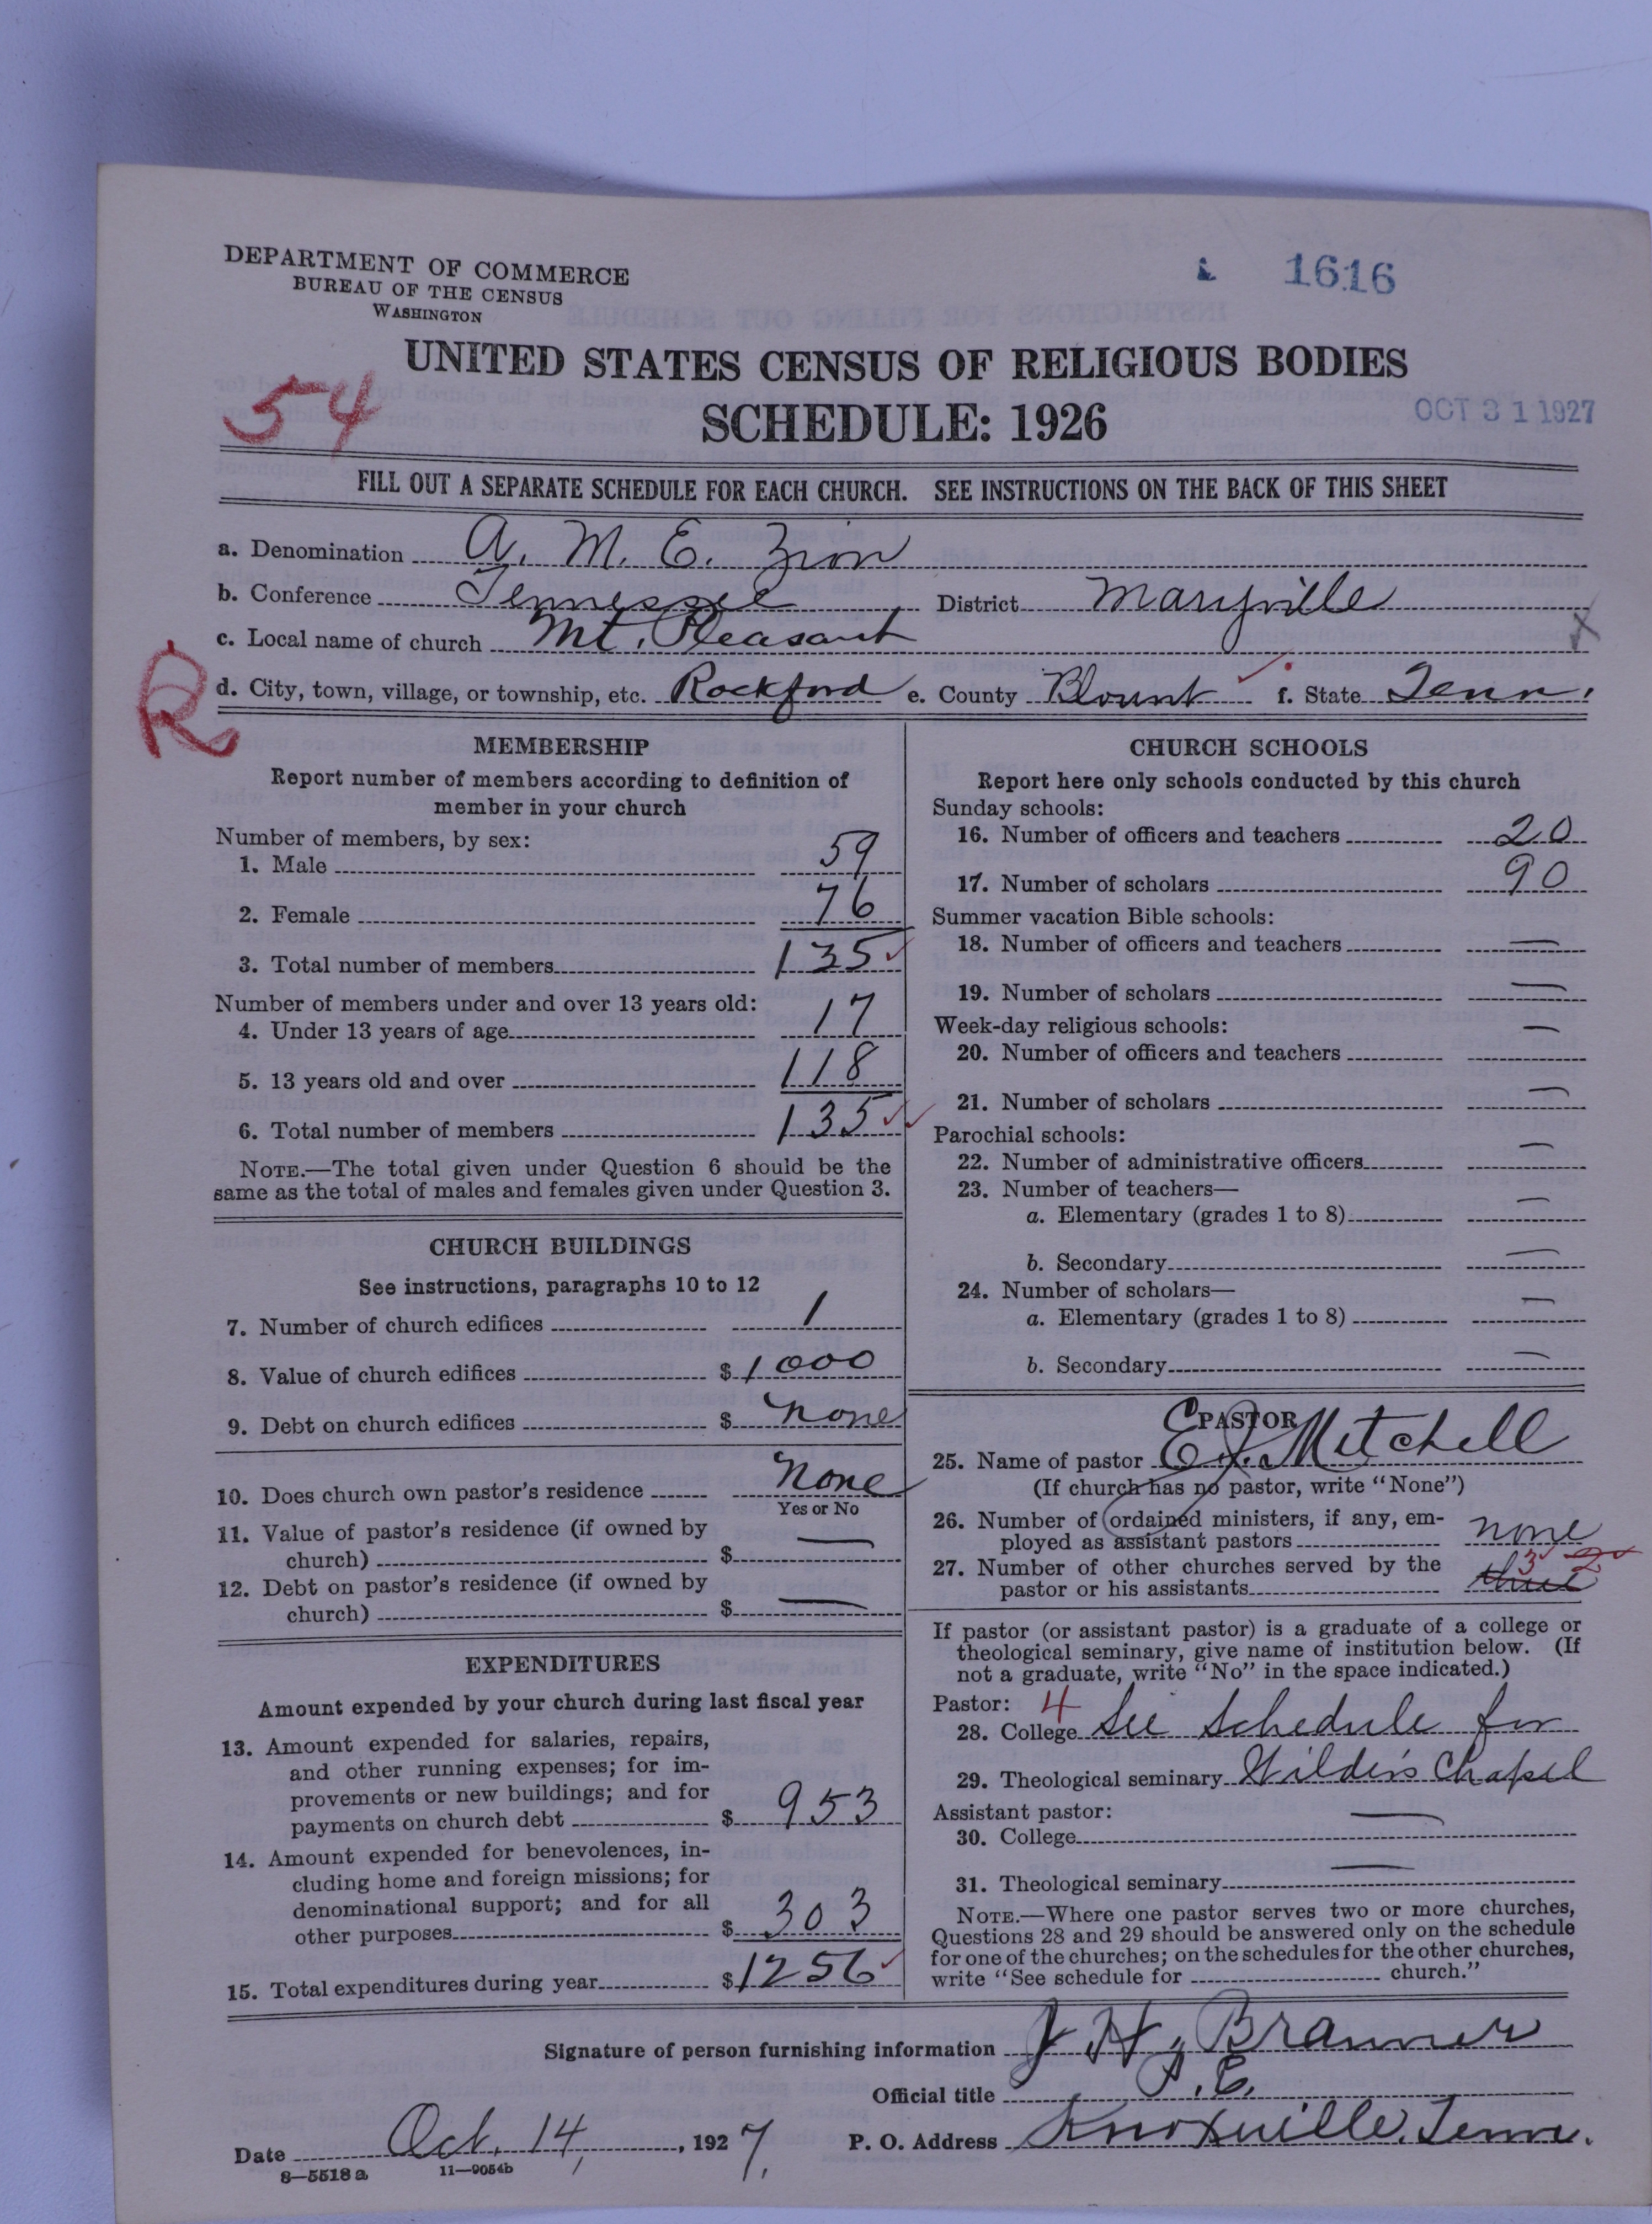 DEPARTMENT OF COMMERCE
BUREAU OF THE CENSUS
WASHINGTON
1616
UNITED STATES CENSUS OF RELIGIOUS BODIES
54
SCHEDULE: 1926
OCT 31 1927
FILL OUT A SEPARATE SCHEDULE FOR EACH CHURCH. SEE INSTRUCTIONS ON THE BACK OF THIS SHEET
a. Denomination A. M. E. Zion
b. Conference Tennessee District Maryville
c. Local name of church Mt. Pleasant
R
d. City, town, village, or township, etc. Rockford e. County Blount f. State Tenn.
MEMBERSHIP
Report number of members according to definition of
member in your church
Number of members, by sex:
1. Male 59
2. Female 76
3. Total number of members 135
Number of members under and over 13 years old:
4. Under 13 years of age 17
5. 13 years old and over 118
6. Total number of members 135
NOTE.—The total given under Question 6 should be the
same as the total of males and females given under Question 3.
CHURCH BUILDINGS
See instructions, paragraphs 10 to 12
7. Number of church edifices 1
8. Value of church edifices $1000
9. Debt on church edifices $ none
10. Does church own pastor's residence none
Yes or No
11. Value of pastor's residence (if owned by
church) $ —
12. Debt on pastor's residence (if owned by
church) $ —
EXPENDITURES
Amount expended by your church during last fiscal year
13. Amount expended for salaries, repairs,
and other running expenses; for im-
provements or new buildings; and for
payments on church debt $ 953
14. Amount expended for benevolences, in-
cluding home and foreign missions; for
denominational support; and for all
other purposes $ 303
15. Total expenditures during year $1256
CHURCH SCHOOLS
Report here only schools conducted by this church
Sunday schools:
16. Number of officers and teachers 20
17. Number of scholars 90
Summer vacation Bible schools:
18. Number of officers and teachers —
19. Number of scholars —
Week-day religious schools:
20. Number of officers and teachers —
21. Number of scholars —
Parochial schools:
22. Number of administrative officers —
23. Number of teachers—
a. Elementary (grades 1 to 8) —
b. Secondary —
24. Number of scholars—
a. Elementary (grades 1 to 8) —
b. Secondary —
PASTOR
25. Name of pastor E. J. Mitchell
(If church has no pastor, write "None")
26. Number of ordained ministers, if any, em-
ployed as assistant pastors none
27. Number of other churches served by the
pastor or his assistants three 3 2
If pastor (or assistant pastor) is a graduate of a college or
theological seminary, give name of institution below. (If
not a graduate, write "No" in the space indicated.)
Pastor: 4
28. College See Schedule for
29. Theological seminary Wilder's Chapel
Assistant pastor:
30. College —
31. Theological seminary —
NOTE.—Where one pastor serves two or more churches,
Questions 28 and 29 should be answered only on the schedule
for one of the churches; on the schedules for the other churches,
write "See schedule for church."
Signature of person furnishing information J. H. Branner
Official title P. E.
Date Oct. 14, 1927. P. O. Address Knoxville, Tenn.
8—5518a 11—9054b